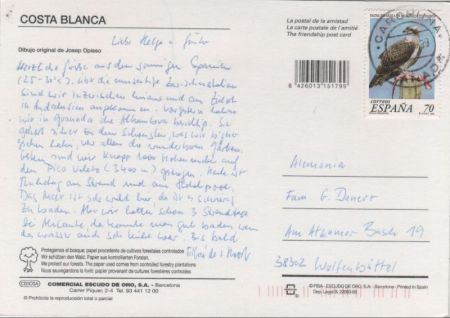 COSTA BLANCA
Dibujo original de Josep Opisso
Liebe Helga u. Günter
herzliche Grüße aus dem sonnigen Spanien
(25-30°C). Über die
sind wir inzwischen hinaus und am
in Andalusien angekommen. Vorgestern haben
wir in Granada die Alhambra besichtigt. Sie
gehört sicher zu dem Schönsten, was wir bisher
gesehen haben, vor allem die wunderbaren Gärten.
sind wir knapp 3000 Höhenmeter auf
den Pico Veleta (3400 m) gezogen. Heute ist
Ruhetag am Strand und am Hotelpool.
Das Meer ist
zu baden. Aber wir hatten schon 3 Strandtage
bei Alicante, da konnte man gut baden
das Wasser auch sehr klar war. Bis bald
Protegemos el bosque; papel procedente de cultivos forestales controlados
Wir schützen den Wald. Papier aus kontrollierten Forsten.
We protect our forests. The paper used comes from controlled forestry plantations
Nous sauvegardons la forêt: papier provenant de cultures forestières contrôlées
COMERCIAL ESCUDO DE ORO, S.A. - Barcelona
Carrer Piquer, 2-4 Tel. 93 441 12 00
® Prohibida la reproducción total o parcial
La postal de la amistad
La carte postale de l'amitié
The friendship post card
8 426013 151799
CORREOS
ESPAÑA 70
Alemania
Fam. G. Denert
Am Atzumer Busch 19
38302 Wolfenbüttel
© FISA - ESCUDO DE ORO, S.A. - Barcelona - Printed in Spain